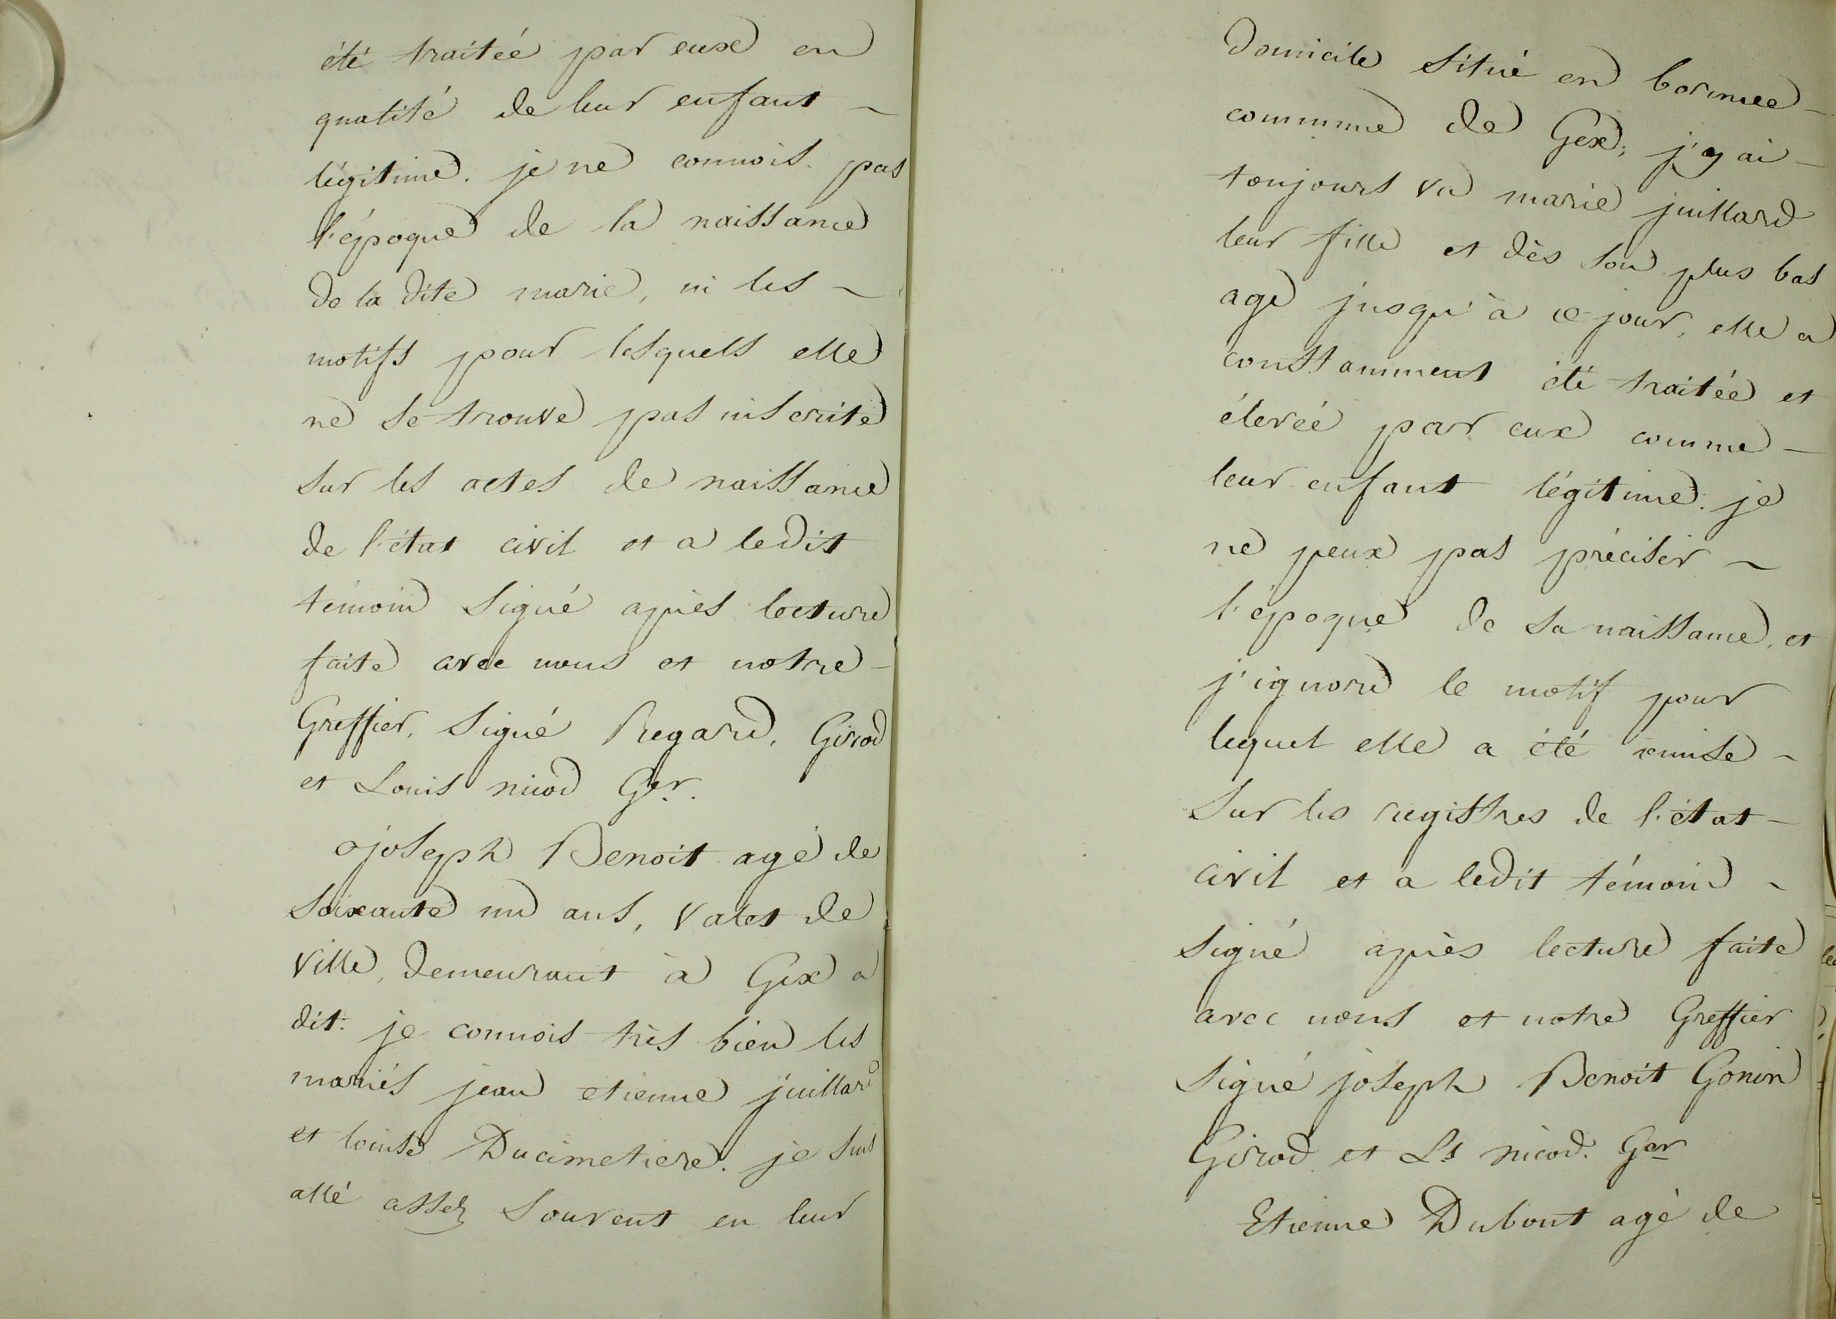 été traitée par eux en
qualité de leur enfant
légitime. je ne connois pas
l'époque de la naissance
de la dite marie, ni les
motifs pour lesquels elle
ne se trouve pas inscrite
sur les actes de naissance
de l'état civil et a ledit
témoin signé après lecture
faite avec nous et notre
Greffier. Signé Regard, Girod
et Louis nicod Ger.
joseph Benoit agé de
soixante un ans, Valet de
Ville, demeurant à Gex a
dit: je connois très bien les
mariés jean etienne juillard
et louise Ducimetiere. je suis
allé assez souvent en leur
domicile situé en
commune de Gex; j'y ai
toujours vu marie juillard
leur fille et dès son plus bas
age jusqu'à ce jour, elle a
constamment été traitée et
élevée par eux comme
leur enfant légitime. je
ne peux pas préciser
l'époque de sa naissance, et
j'ignore le motif pour
lequel elle a été omise
sur les registres de l'état
civil et a ledit témoin
signé après lecture faite
avec nous et notre Greffier
signé joseph Benoit Gonin
Girod et Ls nicod. Ger
Etienne Dubout agé de